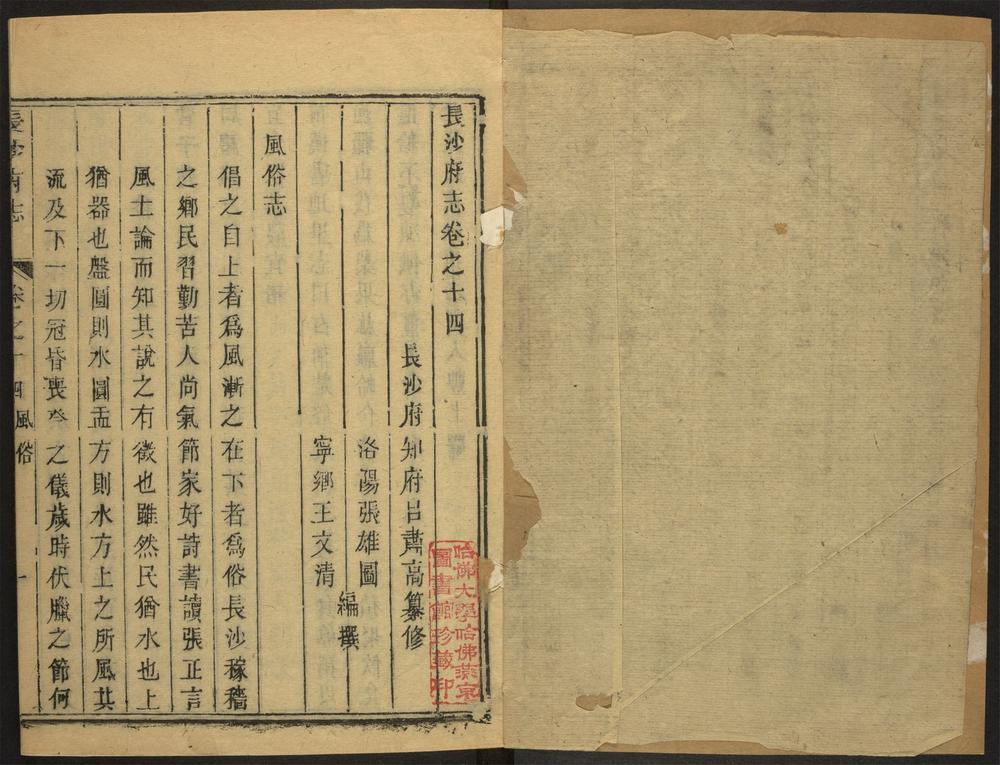 長沙府志卷之十四
長沙府知府呂肅高纂修
洛陽張雄圖
編撰
寧鄉王文清
風俗志
倡之自上者爲風漸之在下者爲俗長沙稼穡
之鄉民習勤苦人尚氣節家好詩書讀張正言
風土論而知其說之有徵也雖然民猶水也上
猶器也盤圓則水圓盂方則水方上之所風其
流及下一切冠昏喪祭之儀歲時伏臘之節何
長沙府志
卷之十四風俗
一
哈佛大學哈佛燕京
圖書館珍藏印